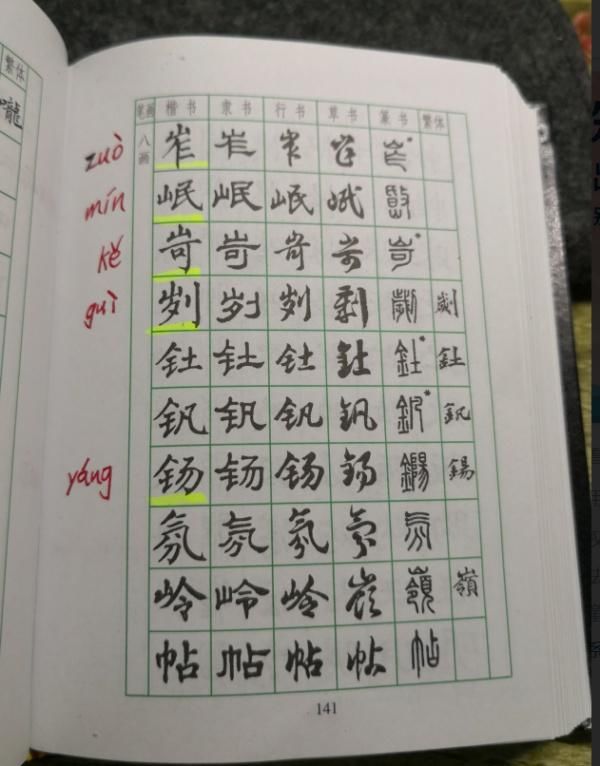 繁体
笔画 楷书 隶书 行书 草书 篆书 繁体
zuò 八画 岝 岝 岝 岝 岝*
mín 岷 岷 岷 岷 岷
kě 岢 岢 岢 岢 岢*
guì 刿 刿 刿 刿 劌 劌
钍 钍 钍 釷 釷* 釷
钒 钒 钒 钒 釩* 釩
yáng 钖 钖 钖 钖 鍚 鍚
氛 氛 氛 氛 氛
岭 岭 岭 嶺 嶺 嶺
帖 帖 帖 帖 帖
141